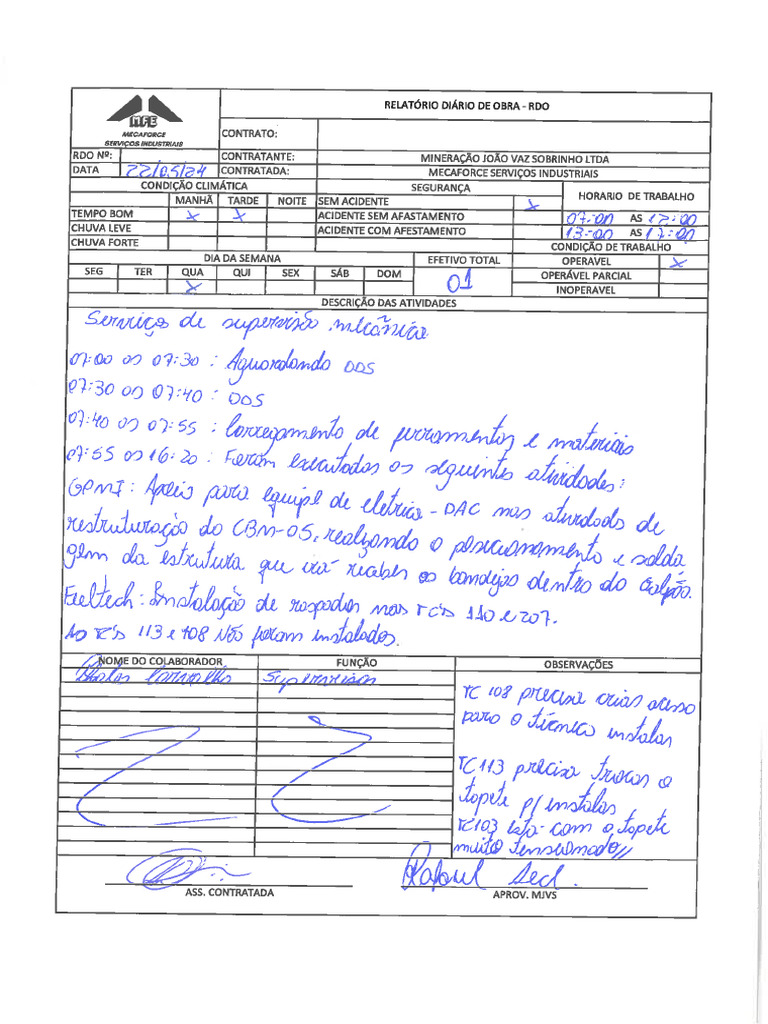 RELATÓRIO DIÁRIO DE OBRA - RDO
MFE
MECAFORCE
SERVIÇOS INDUSTRIAIS
CONTRATO:
RDO Nº:
CONTRATANTE: MINERAÇÃO JOÃO VAZ SOBRINHO LTDA
DATA 22/05/24 CONTRATADA: MECAFORCE SERVIÇOS INDUSTRIAIS
CONDIÇÃO CLIMÁTICA SEGURANÇA HORARIO DE TRABALHO
MANHÃ TARDE NOITE SEM ACIDENTE X
TEMPO BOM X X ACIDENTE SEM AFASTAMENTO 07:00 AS 12:00
CHUVA LEVE ACIDENTE COM AFESTAMENTO 13:00 AS 17:00
CHUVA FORTE CONDIÇÃO DE TRABALHO
DIA DA SEMANA EFETIVO TOTAL OPERAVEL X
SEG TER QUA QUI SEX SÁB DOM 01 OPERÁVEL PARCIAL
X INOPERAVEL
DESCRIÇÃO DAS ATIVIDADES
Serviços de supervisão mecânica
07:00 as 07:30 : Aguardando DDS
07:30 as 07:40 : DDS
07:40 as 07:55 : Carregamento de ferramentas e materiais
07:55 as 16:20 : Foram executadas as seguintes atividades:
GPMI: Apoio para equipe de eletrica - DAC nas atividads de
restruturação do CBM-05, realizando o posicionamento e solda
gem da estrutura que irá receber as bandejas dentro do galpão.
Eeltech: Instalação de raspador nas TC's 110 e 207.
As TC's 113 e 108 Não foram instalados.
NOME DO COLABORADOR FUNÇÃO OBSERVAÇÕES
Carvalho Supervisor
TC 108 precisa criar acesso
para o técnico instalar
TC113 precisa trocar o
tapete p/ instalar
TC103 Está com o tapete
muito tensionado//
Rafael
ASS. CONTRATADA APROV. MJVS